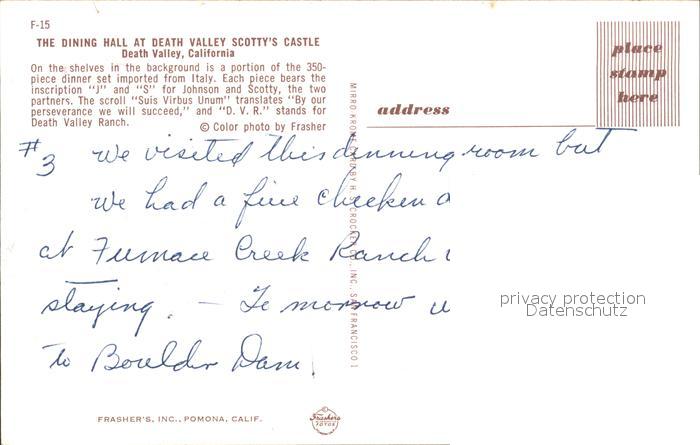 F-15
THE DINING HALL AT DEATH VALLEY SCOTTY'S CASTLE
Death Valley, California
On the shelves in the background is a portion of the 350-
piece dinner set imported from Italy. Each piece bears the
inscription "J" and "S" for Johnson and Scotty, the two
partners. The scroll "Suis Virbus Unum" translates "By our
perseverance we will succeed," and "D. V. R." stands for
Death Valley Ranch.
© Color photo by Frasher
place
stamp
here
address
#3 We visited this dinning room but
we had a fine chicken
at Furnace Creek Ranch
staying. — To morrow
to Boulder Dam
MIRRO-KROME CARD BY H. S. CROCKER CO., INC., SAN FRANCISCO 1
privacy protection
Datenschutz
FRASHER'S, INC., POMONA, CALIF.
Frashers
FOTOS